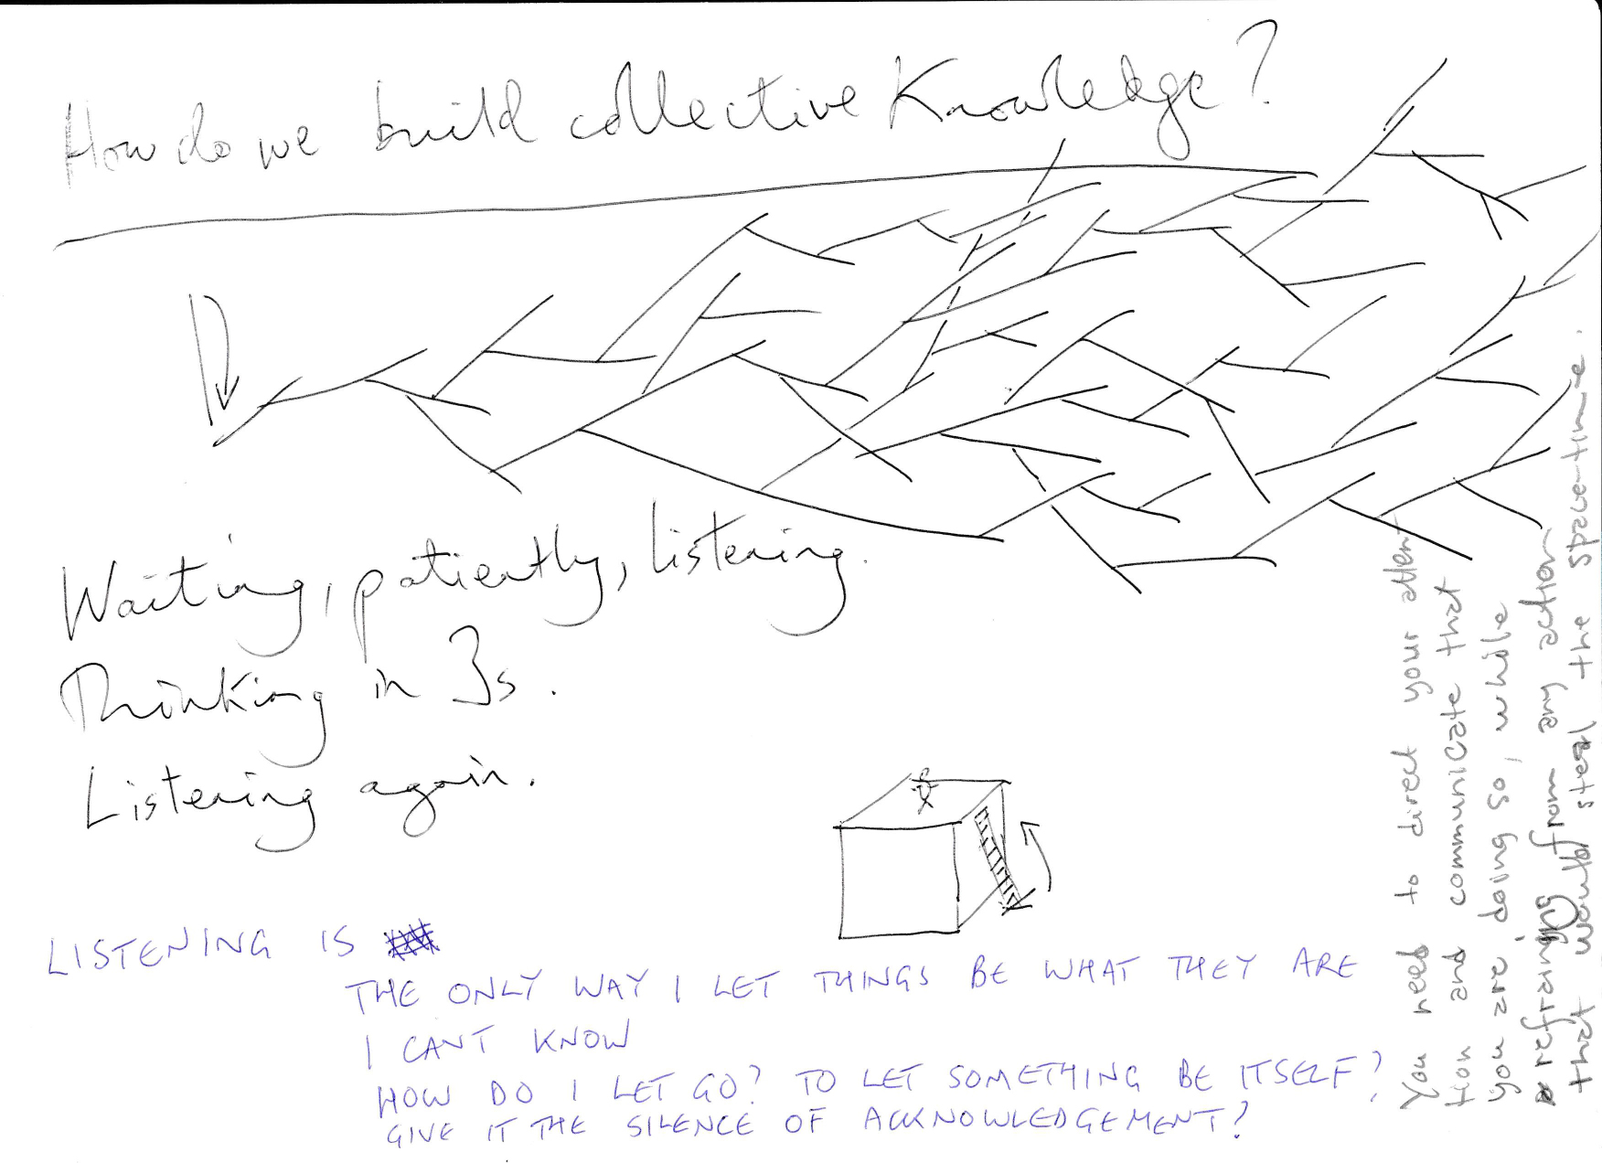 How do we build collective Knowledge?
Waiting, patiently, listening.
Thinking in 3s.
Listening again.
LISTENING IS
THE ONLY WAY I LET THINGS BE WHAT THEY ARE
I CAN'T KNOW
HOW DO I LET GO? TO LET SOMETHING BE ITSELF?
GIVE IT THE SILENCE OF ACKNOWLEDGEMENT?
You need to direct your atten
tion and communicate that
you are doing so, while
refraining from any action
that would steal the space-time.